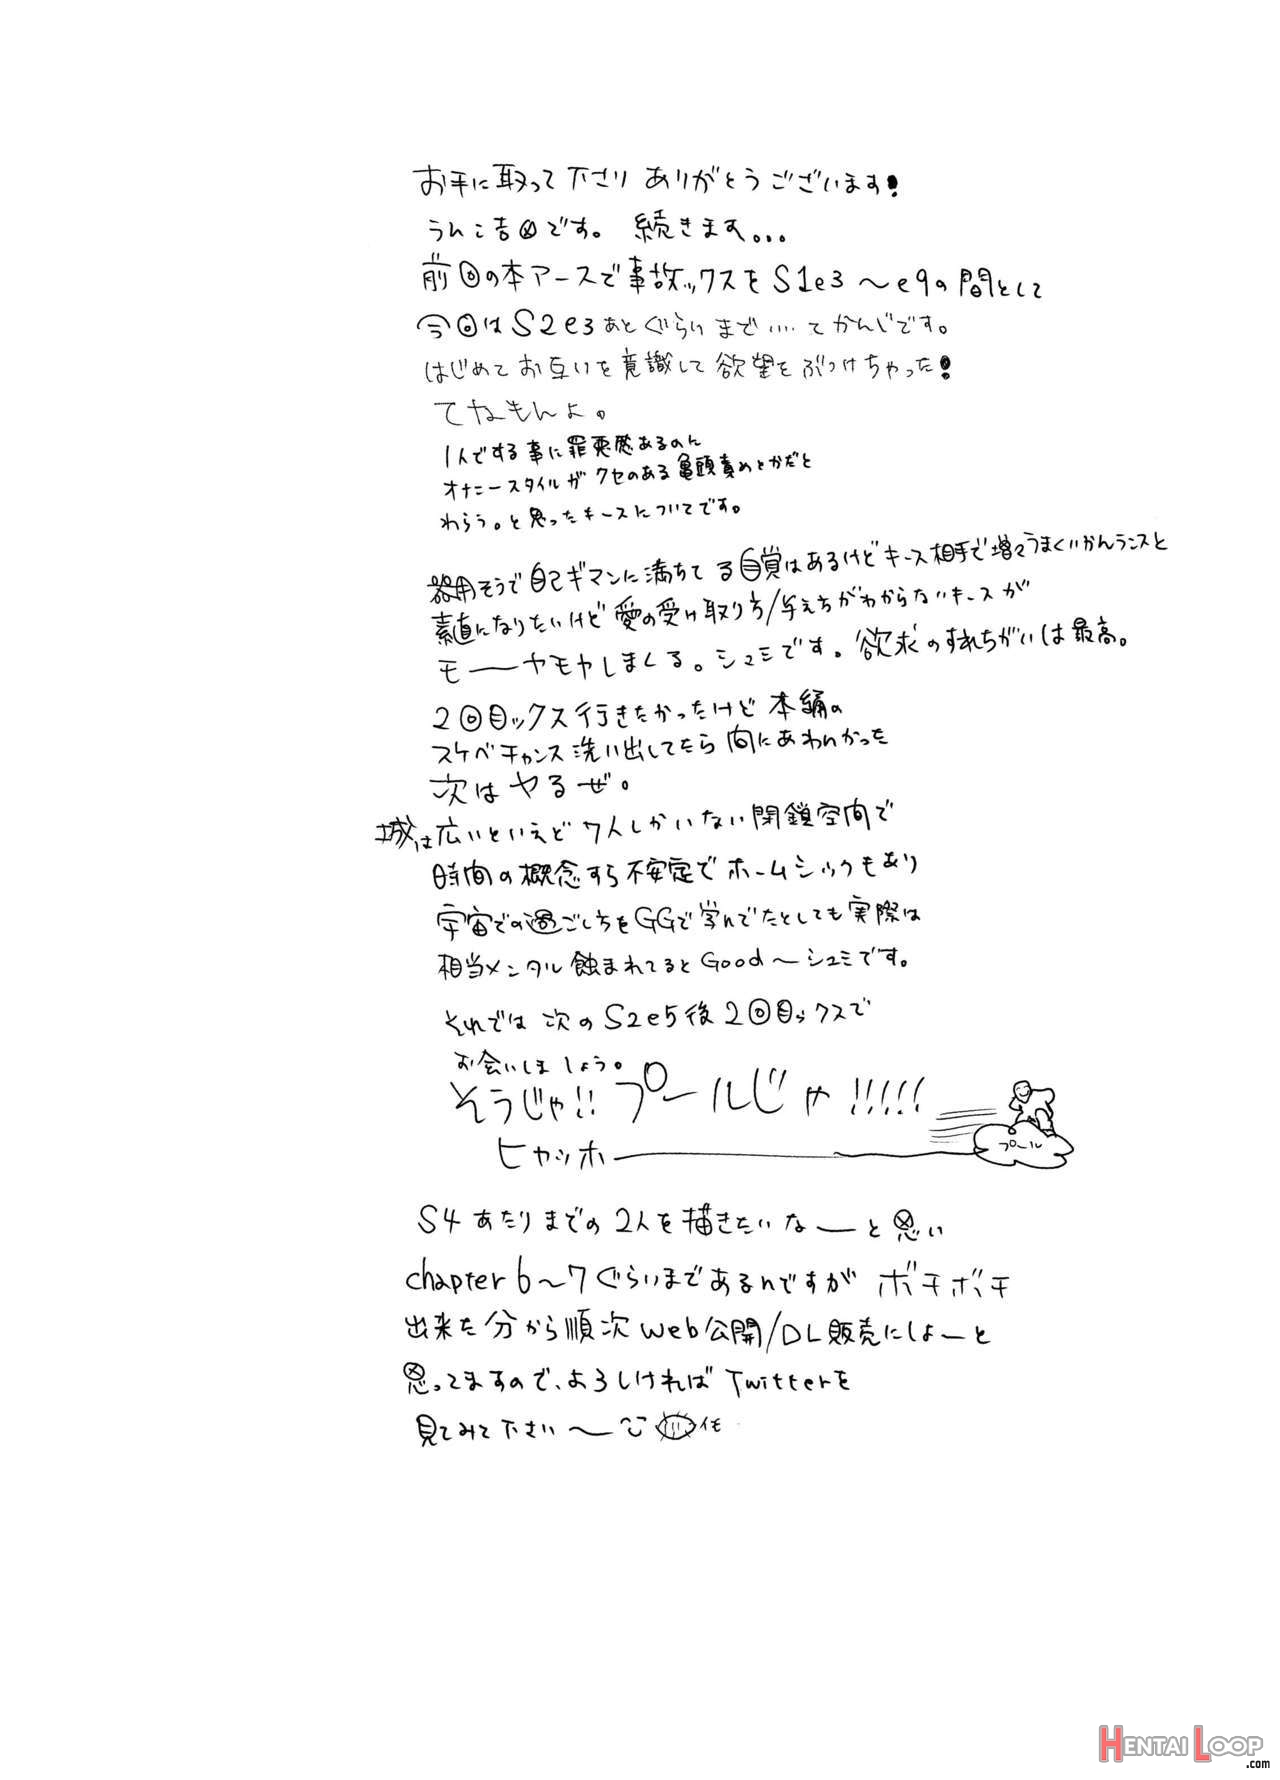 お手に取って下さり ありがとうございます!
うんこ吉田です。 続きます...
前回の本アースで事故ックスを S1e3〜e9の間として
今回は S2e3あとぐらいまで....てかんじです。
はじめてお互いを意識して欲望をぶつけちゃった!
てなもんよ。
1人でする事に罪悪感あるのん
オナニースタイルが クセのある亀頭責めとかだと
わらう。と思ったキースについてです。
器用そうで自己ギマンに満ちてる自覚はあるけどキース相手で増々うまくいかんランスと
素直になりたいけど愛の受け取り方/与え方がわからないキースが
モーーヤモヤしまくる。シュミです。欲求のすれちがいは最高。
2回目ックス行きたかったけど 本編の
スケベチャンス洗い出してたら 間にあわんかった
次はヤるぜ。
城は広いといえど 7人しかいない閉鎖空間で
時間の概念すら不安定でホームシックもあり
宇宙での過ごし方をGGで学んでたとしても実際は
相当メンタル蝕まれてるとGood〜シュミです。
それでは 次のS2e5後2回目ックスで
お会いしましょう。
そうじゃ!! プールじゃ!!!!!
プール
ヒャッホー
S4あたりまでの2人を描きたいなーと思い
chapter6〜7ぐらいまであるんですが ボチボチ
出来た分から順次web公開/DL販売にしよーと
思ってますので、よろしければTwitterを
見てみて下さい〜
HENTAI LOOP
.com